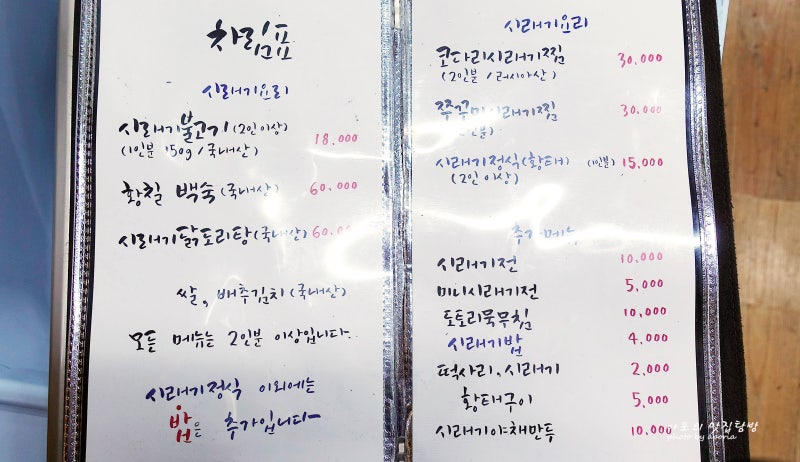 차림표
시래기요리
시래기불고기 (2인이상) 18,000
(1인분 150g / 국내산)
황칠 백숙 (국내산) 60,000
시래기닭도리탕 (국내산) 60,
쌀, 배추김치 (국내산)
모든 메뉴는 2인분 이상입니다.
시래기정식 이외에는
밥은 추가입니다
시래기요리
코다리시래기찜 30,000
(2인분 / 러시아산)
쭈꾸미시래기찜 30,000
시래기정식 (황태) (1인분) 15,000
(2인 이상)
추가메뉴
시래기전 10,000
미니시래기전 5,000
도토리묵무침 10,000
시래기밥 4,000
떡사리, 시래기 2,000
황태구이 5,000
시래기야채만두 10,000
맛집탐방
photo by